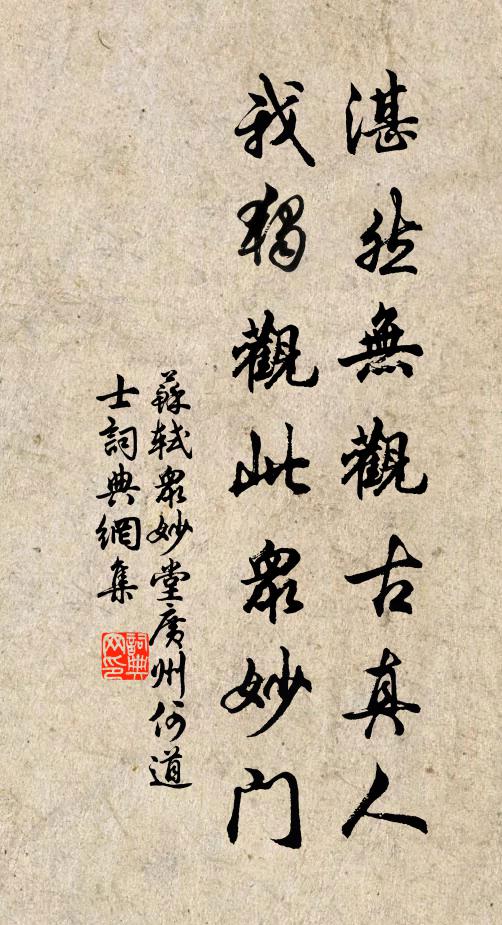 湛然無觀古真人
我獨觀此眾妙門
蘇軾眾妙堂廣州何道
士詞典網集
詞典網印